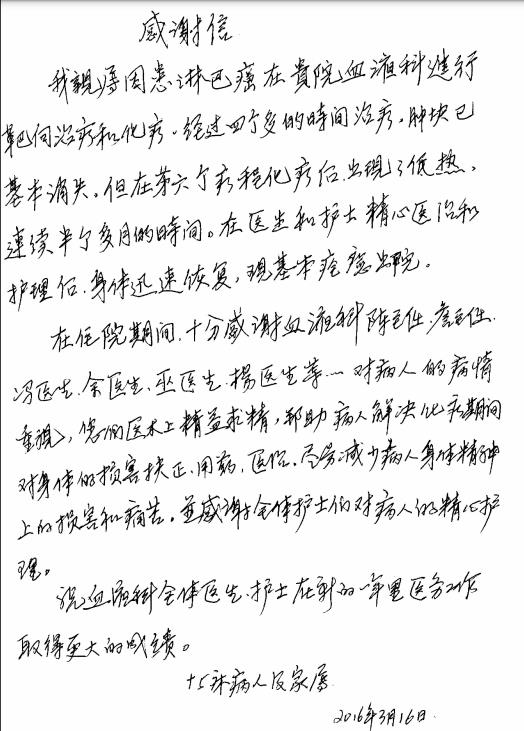 感谢信
我親属因患淋巴癌在貴院血液科進行
靶向治疗和化疗。经过四个多的時间治疗，肿块已
基本消失。但在第六个疗程化疗后出现了低热，
連续半个多月的時间。在医生和护士精心医治和
护理后，身体迅速恢复，现基本痊癒出院。
在住院期间，十分感谢血液科陈主任、詹主任、
冯医生、余医生、巫医生、楊医生等…对病人的病情
重視，您们医术上精益求精，帮助病人解决化疗期间
对身体的损害扶正、用药、医治。尽量减少病人身体精神
上的损害和痛苦。並感谢全体护士们对病人的精心护
理。
祝血液科全体医生、护士在新的一年里医务工作
取得更大的成績。
十5床病人及家属
2016年3月16日